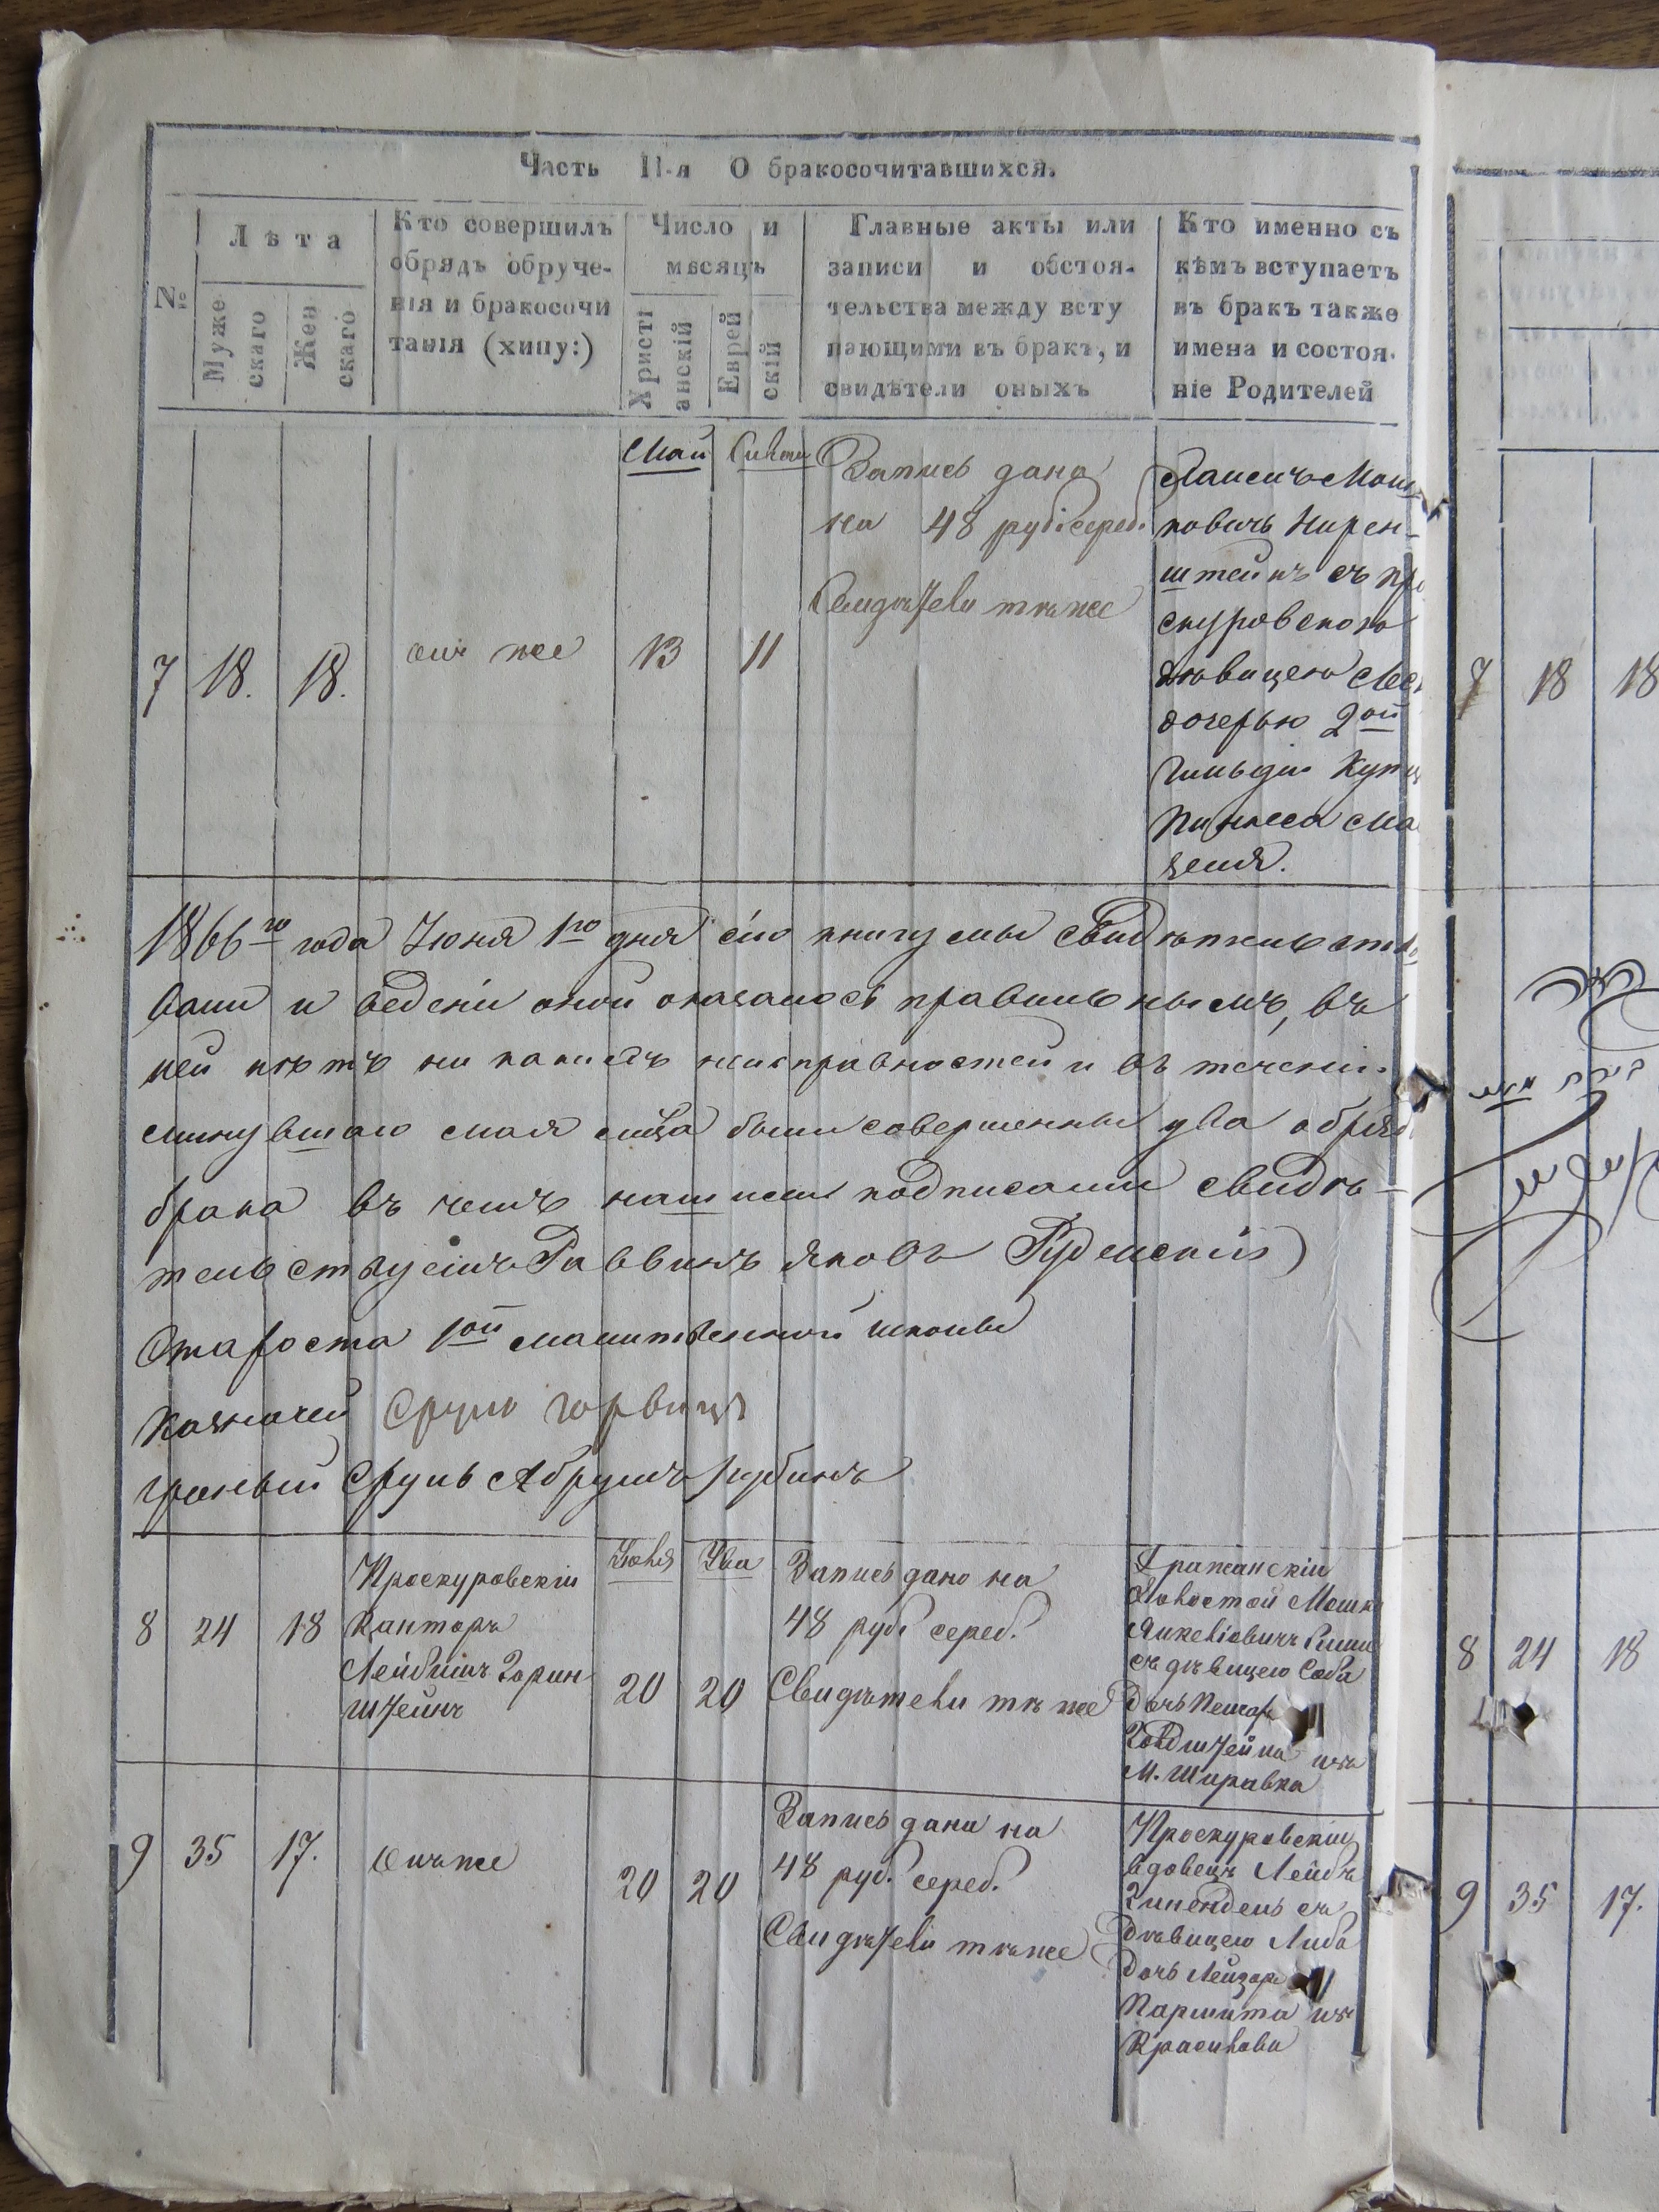 Часть II-я О бракосочитавшихся.
№
Лѣта
Мужескаго
Женскаго
Кто совершилъ
обрядъ обруче-
нія и бракосочи
танія (хипу:)
Число и
мѣсяцъ
Христіанскій
Еврейскій
Главные акты или
записи и обстоя-
тельства между всту
пающими въ бракъ, и
свидѣтели оныхъ
Кто именно съ
кѣмъ вступаетъ
въ бракъ также
имена и состоя-
ніе Родителей
7 18. 18.
онъ же
Май
13
11
Запись дана
на 48 руб: сереб.
Свидѣтели тѣ же
Мош
ковичъ Нирен-
штейнъ съ про
скуровскою
дѣвицею
дочерью 2ой
Гильдіи Купц
Пинкеса
1866го года Іюня 1го дня сію книгу мы свидѣтельство
вали и веденіи оной оказалось правильнымъ, въ
ней нѣтъ ни какихъ неисправностей и въ теченіи
минувшаго мая мѣца были совершенны два обряд
брака въ чемъ нашими подписами свидѣ-
тельствуемъ Раввинъ Яковъ
Староста 1ой молитвенной школы
Казначей Сруль Горвицъ
ученый Сруль Абрумъ Рубинъ
8 24 18
Проскуровскій
Канторъ
Лейбишъ Горин
штейнъ
Іюня
20
20
Запись дано на
48 руб. сереб.
Свидѣтели тѣ же
Гражанскій
холостой Мошко
Янкеліовичъ
съ дѣвицею Соба
дочь
Голдштейна изъ
М. Шаравка
9 35 17.
онъ же
20 20
Запись дана на
48 руб. сереб.
Свидѣтели тѣ же
Проскуровскій
вдовецъ Лейбъ
съ
дѣвицею Либа
дочь Лейзора
изъ
Красилова
7 18 18
8 24 18
9 35 17.